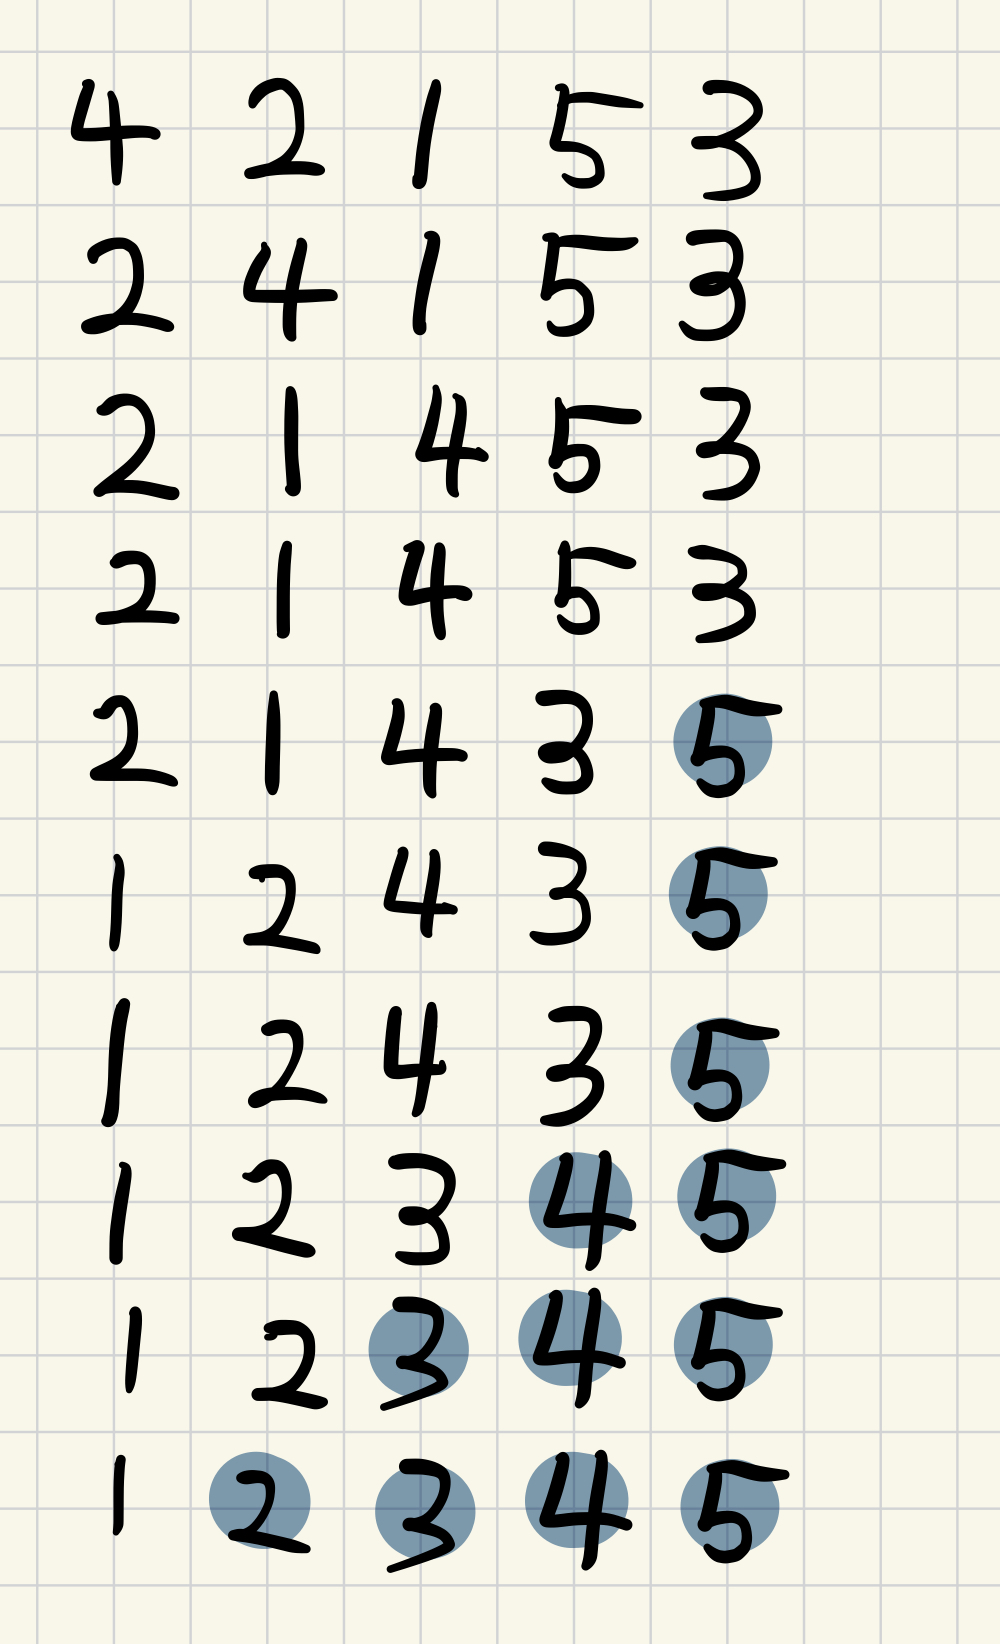 4 2 1 5 3
2 4 1 5 3
2 1 4 5 3
2 1 4 5 3
2 1 4 3 5
1 2 4 3 5
1 2 4 3 5
1 2 3 4 5
1 2 3 4 5
1 2 3 4 5